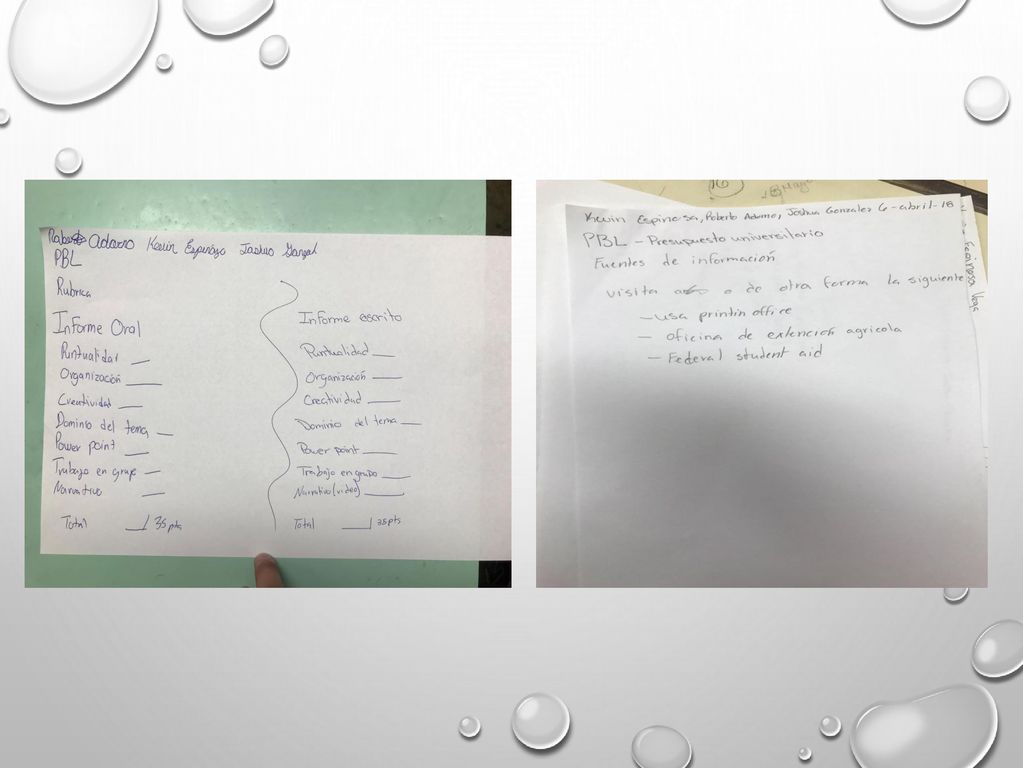 Roberto Adorno Kevin Espinosa Joshua Gonzal
PBL
Rubrica
Informe Oral
Puntualidad __
Organización ___
Creatividad ___
Dominio del tema, __
Power point ___
Trabajo en grupo __
Narrativo ___
Total ___/ 35 pts
Informe escrito
Puntualidad ___
Organización ____
Creatividad ____
Dominio del tema ___
Power point ____
Trabajo en grupo ____
Narrativo (video) _____
Total ____/ 35 pts
Kevin Espinosa, Roberto Adorno, Joshua Gonzalez 6-abril-18
PBL - Presupuesto universitario
Fuentes de información
visita o de otra forma la siguiente
- usa printin office
- oficina de extencion agricola
- Federal student aid
16
Mayo
Espinosa Vega